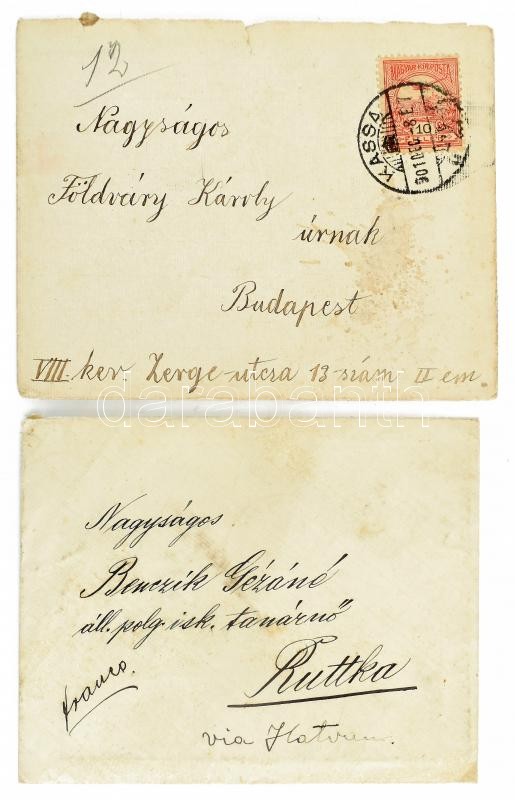 12
MAGYAR KIR. POSTA
10
KASSA
Nagyságos
Földváry Károly
úrnak
Budapest
VIII ker Zerge-utcza 13-szám II em.
darabanth
Nagyságos
Benczik Gézáné
áll. polg. isk. tanárnő
franco.
Ruttka
via Hatvan.